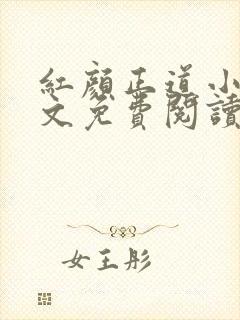 紅顏正道小
文免費閱讀
女王彤